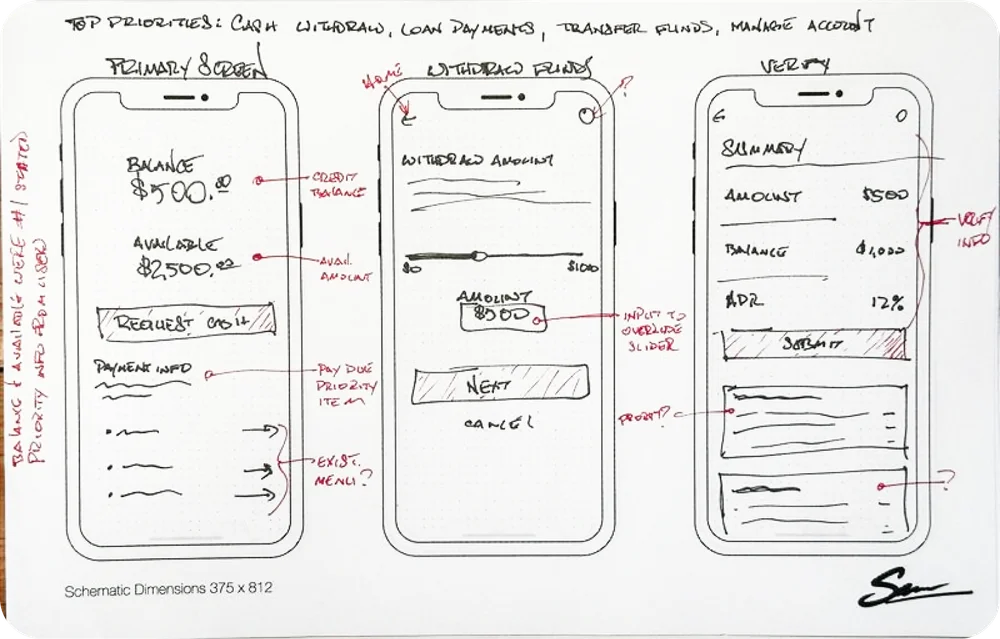 TOP PRIORITIES: CASH WITHDRAW, LOAN PAYMENTS, TRANSFER FUNDS, MANAGE ACCOUNT
BALANCE & AVAILABLE WERE #1 STATED
PRIORITY INFO FROM USER
PRIMARY SCREEN
BALANCE
$500.00
CREDIT
BALANCE
AVAILABLE
$2,500.00
AVAIL.
AMOUNT
REQUEST CASH
PAYMENT INFO
PAY DUE
PRIORITY
ITEM
EXIST.
MENU?
WITHDRAW FUNDS
HOME
?
WITHDRAW AMOUNT
$0
AMOUNT
$500
INPUT TO
OVERRIDE
SLIDER
NEXT
CANCEL
VERIFY
SUMMARY
AMOUNT $500
BALANCE $1,000
12%
VERIFY
INFO
SUBMIT
?
Schematic Dimensions 375 x 812